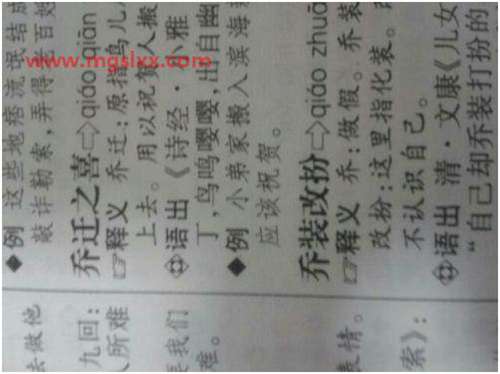 www.mgslxx.com
◆例 这些地痞流氓结成
敲诈勒索，弄得老百姓
乔迁之喜⇨qiáo qiān
☞释义 乔迁：原指鸟儿
上去。用以祝贺人搬
语出 《诗经·小雅
丁，鸟鸣嘤嘤，出自幽
◆例 小弟家搬入滨海
应该祝贺。
乔装改扮⇨qiáo zhuā
☞释义 乔：做假。乔装
改扮：这里指化装。
不认识自己。
语出 清·文康《儿女
“自己却乔装打扮的
去做他
九回：
人所难
我们
难。
表情。
索》：